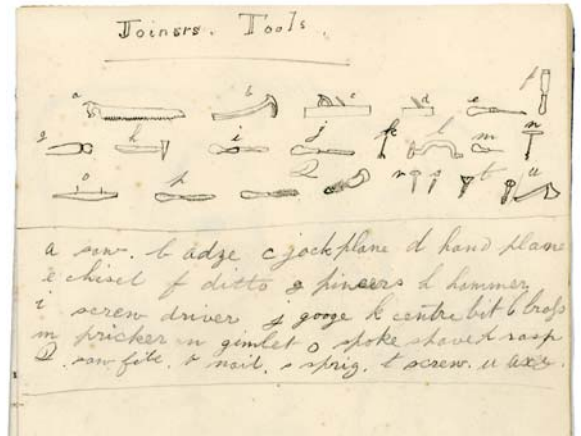 Joiners. Tools.
a b c d e f
g h i j k l m n
o p Q r s t u
a saw. b adze c jack plane d hand plane
e chisel f ditto g pincers h hammer
i screw driver j googe k centre bit l brass
m pricker n gimlet o spoke shave p rasp
Q. saw file. r nail. s sprig. t screw. u axe.